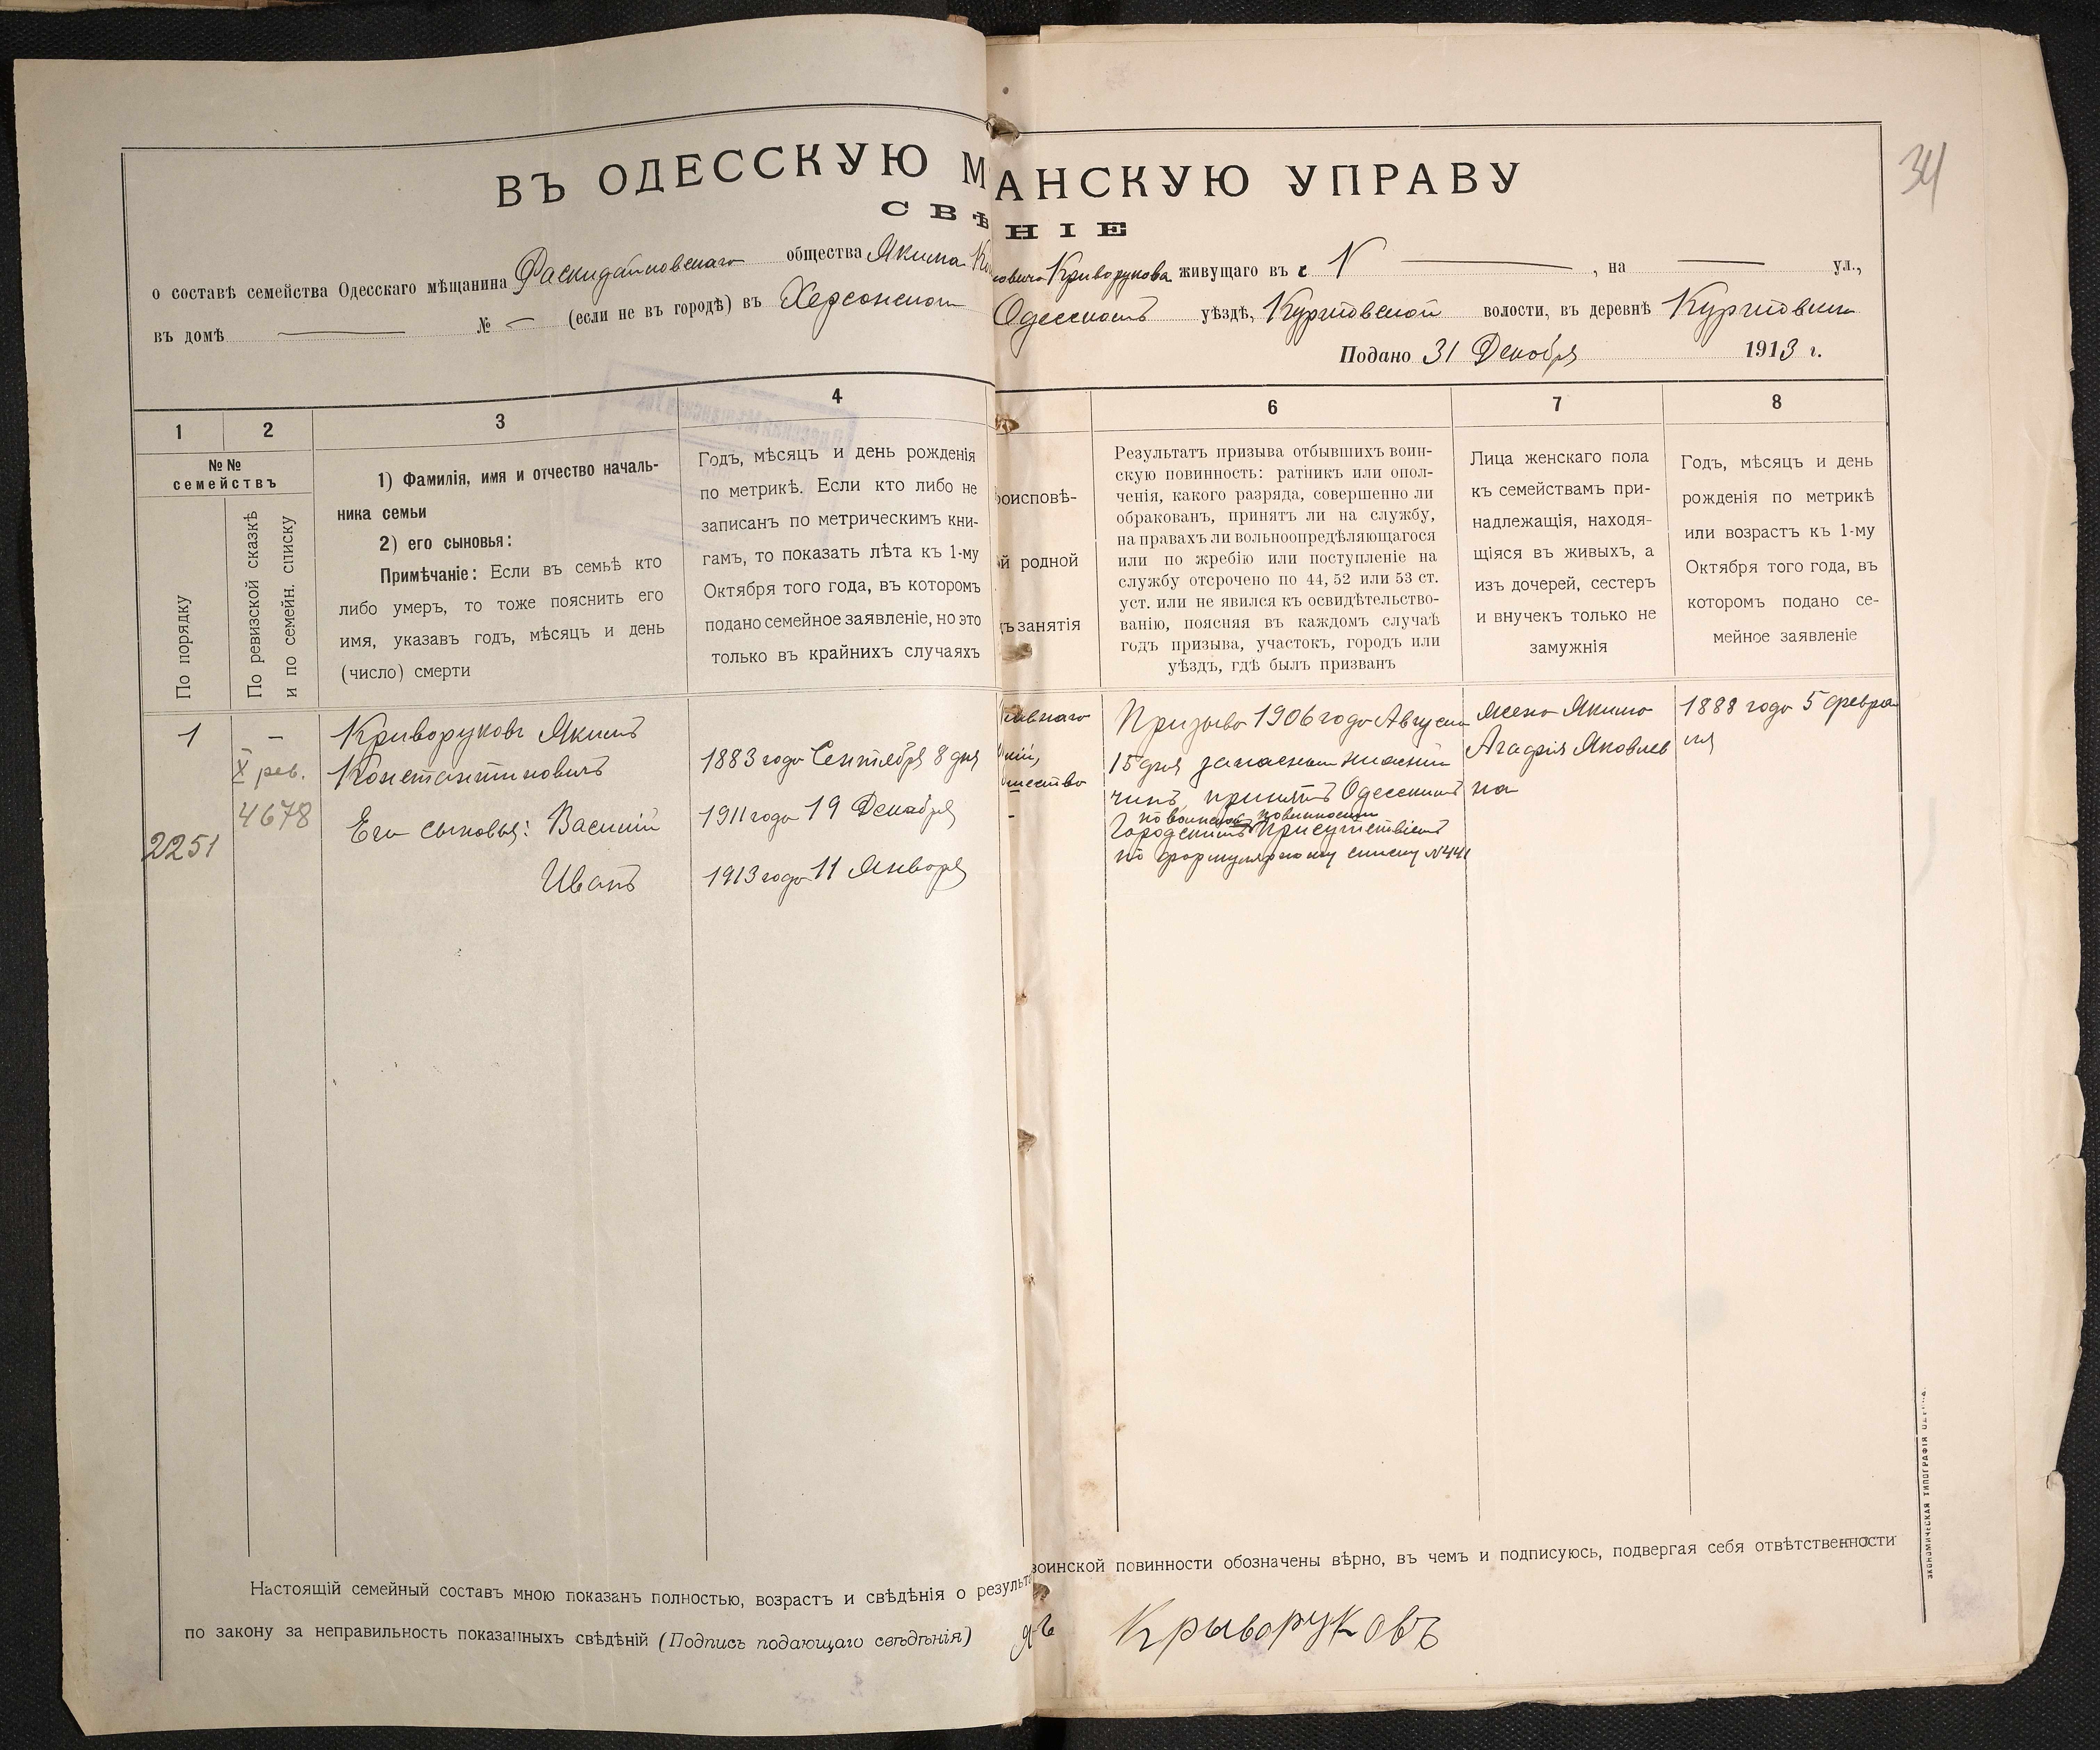 34
ВЪ ОДЕССКУЮ М АНСКУЮ УПРАВУ
СВѢ НІЕ
о составѣ семейства Одесскаго мѣщанина общества Якима Ко совича Криворукова живущаго въ с , на ул.,
въ домѣ № — (если не въ городѣ) въ Херсонской Одесскомъ уѣздѣ, волости, въ деревнѣ
Подано 31 Декабря 1913 г.
1 2 3 4 6 7 8
№№
семействъ
По порядку
По ревизской сказкѣ
и по семейн. списку
1) Фамилія, имя и отчество началь-
ника семьи
2) его сыновья:
Примѣчаніе: Если въ семьѣ кто
либо умеръ, то тоже пояснить его
имя, указавъ годъ, мѣсяцъ и день
(число) смерти
Годъ, мѣсяцъ и день рожденія
по метрикѣ. Если кто либо не
записанъ по метрическимъ кни-
гамъ, то показать лѣта къ 1-му
Октября того года, въ которомъ
подано семейное заявленіе, но это
только въ крайнихъ случаяхъ
роисповѣ-
й родной
ъ занятія
Результатъ призыва отбывшихъ воин-
скую повинность: ратникъ или опол-
ченія, какого разряда, совершенно ли
обракованъ, принятъ ли на службу,
на правахъ ли вольноопредѣляющагося
или по жребію или поступленіе на
службу отсрочено по 44, 52 или 53 ст.
уст. или не явился къ освидѣтельство-
ванію, поясняя въ каждомъ случаѣ
годъ призыва, участокъ, городъ или
уѣздъ, гдѣ былъ призванъ
Лица женскаго пола
къ семействамъ при-
надлежащія, находя-
щіяся въ живыхъ, а
изъ дочерей, сестеръ
и внучекъ только не
замужнія
Годъ, мѣсяцъ и день
рожденія по метрикѣ
или возрастъ къ 1-му
Октября того года, въ
которомъ подано се-
мейное заявленіе
1
2251
—
X рев.
4678
Криворуковъ Якимъ
Константиновичъ
Его сыновья: Василій
Иванъ
1883 года Сентября 8 дня
1911 года 19 Декабря
1913 года 11 Января
славнаго
Призыва 1906 года Августа
15 дня запасный нижній
чинъ, принятъ Одесскимъ
по воинской повинности
Городскимъ Присутствіемъ
по формулярному списку №441
жена Якима
Агафія Яковлев
на
1888 года 5 Февра
ля
Настоящій семейный составъ мною показанъ полностью, возрастъ и свѣдѣнія о результа воинской повинности обозначены вѣрно, въ чемъ и подписуюсь, подвергая себя отвѣтственности
по закону за неправильность показанныхъ свѣдѣній (Подпись подающаго свѣдѣнія) Крыворуковъ
ЭКОНОМИЧЕСКАЯ ТИПОГРАФІЯ